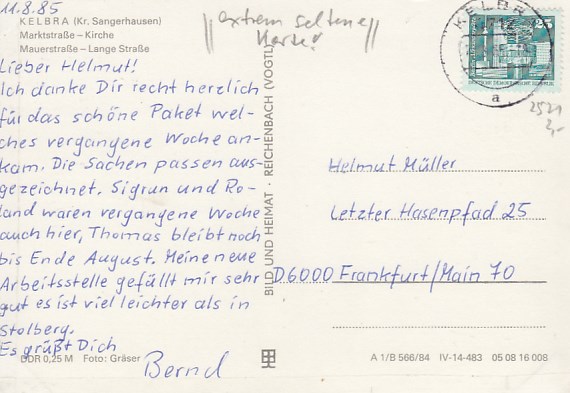 11.8.85
KELBRA (Kr. Sangerhausen)
Marktstraße – Kirche
Mauerstraße – Lange Straße
Lieber Helmut!
Ich danke Dir recht herzlich
für das schöne Paket wel-
ches vergangene Woche an-
kam. Die Sachen passen aus-
gezeichnet. Sigrun und Ro-
land waren vergangene Woche
auch hier, Thomas bleibt noch
bis Ende August. Meine neue
Arbeitsstelle gefällt mir sehr
gut es ist viel leichter als in
Stolberg.
Es grüßt Dich
Bernd
DDR 0,25 M Foto: Gräser
"extrem seltene
Karte!"
BILD UND HEIMAT · REICHENBACH (VOGTL)
KELBRA
4712
a
25
DEUTSCHE DEMOKRATISCHE REPUBLIK
2521
2,-
Helmut Müller
Letzter Hasenpfad 25
D6000 Frankfurt/Main 70
A 1/B 566/84 IV-14-483 05 08 16 008